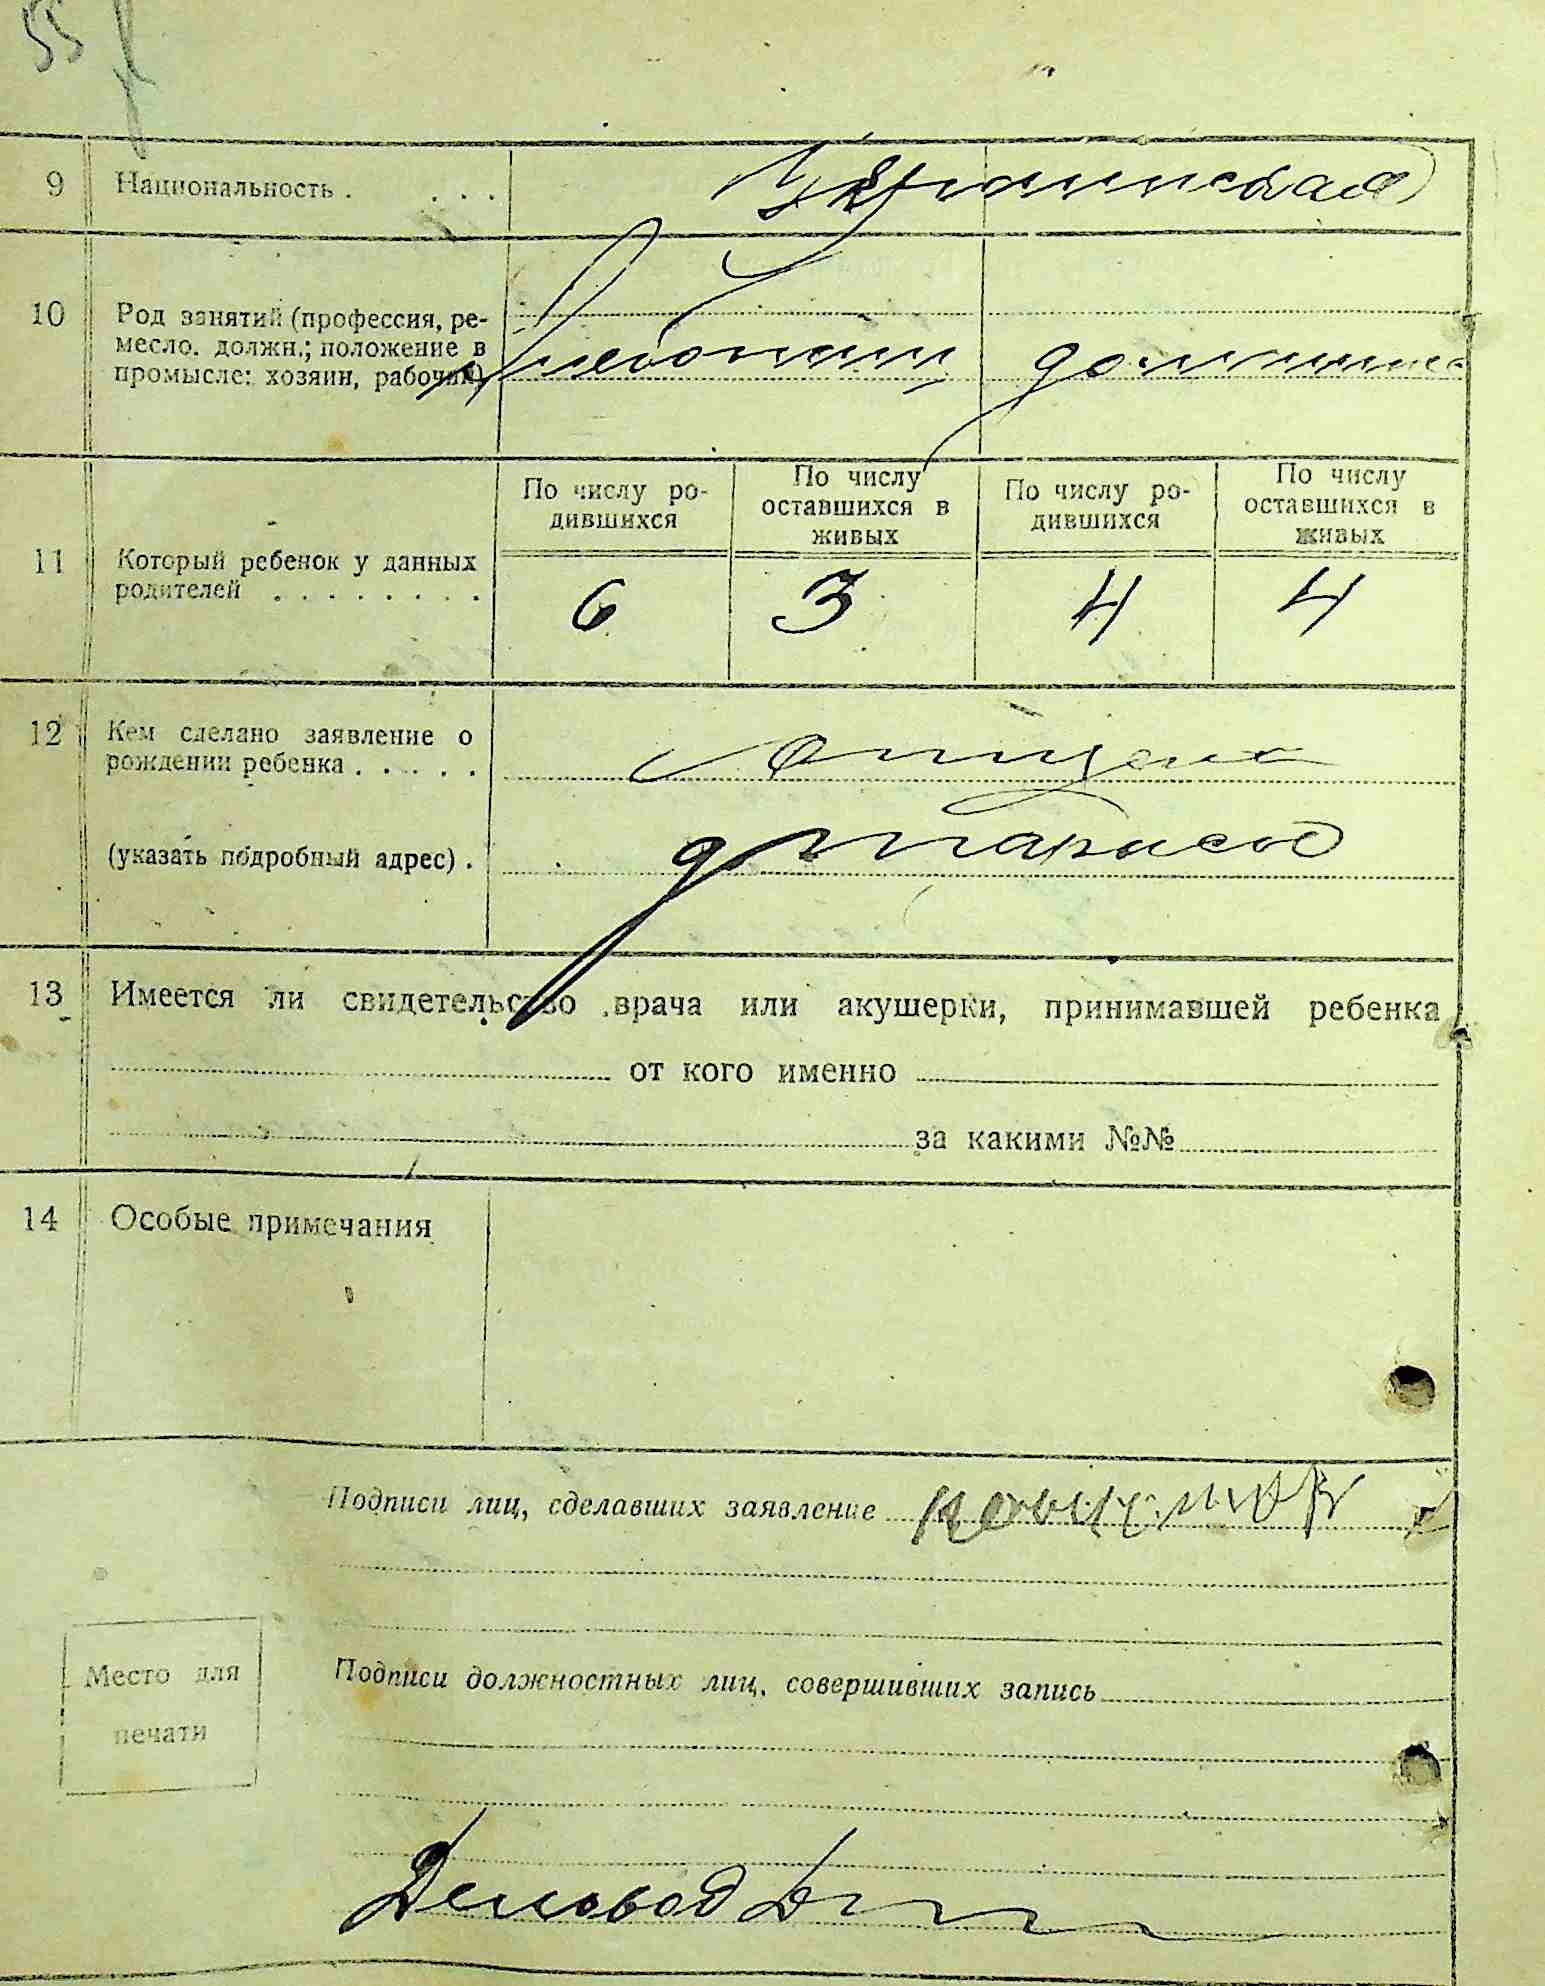 55
9 Национальность . . . . Украинская
10 Род занятий (профессия, ре-
месло. должн.; положение в
промысле: хозяин, рабочий)
Хлебопаш домашн
11 Который ребенок у данных
родителей . . . . . . . .
По числу ро-
дившихся
По числу
оставшихся в
живых
По числу ро-
дившихся
По числу
оставшихся в
живых
6 3 4 4
12 Кем сделано заявление о
рождении ребенка . . . . .
отцем
(указать подробный адрес) .
13 Имеется ли свидетельство врача или акушерки, принимавшей ребенка
от кого именно
за какими №№
14 Особые примечания
Подписи лиц, сделавших заявление
Место для
печати
Подписи должностных лиц, совершивших запись
Деловод